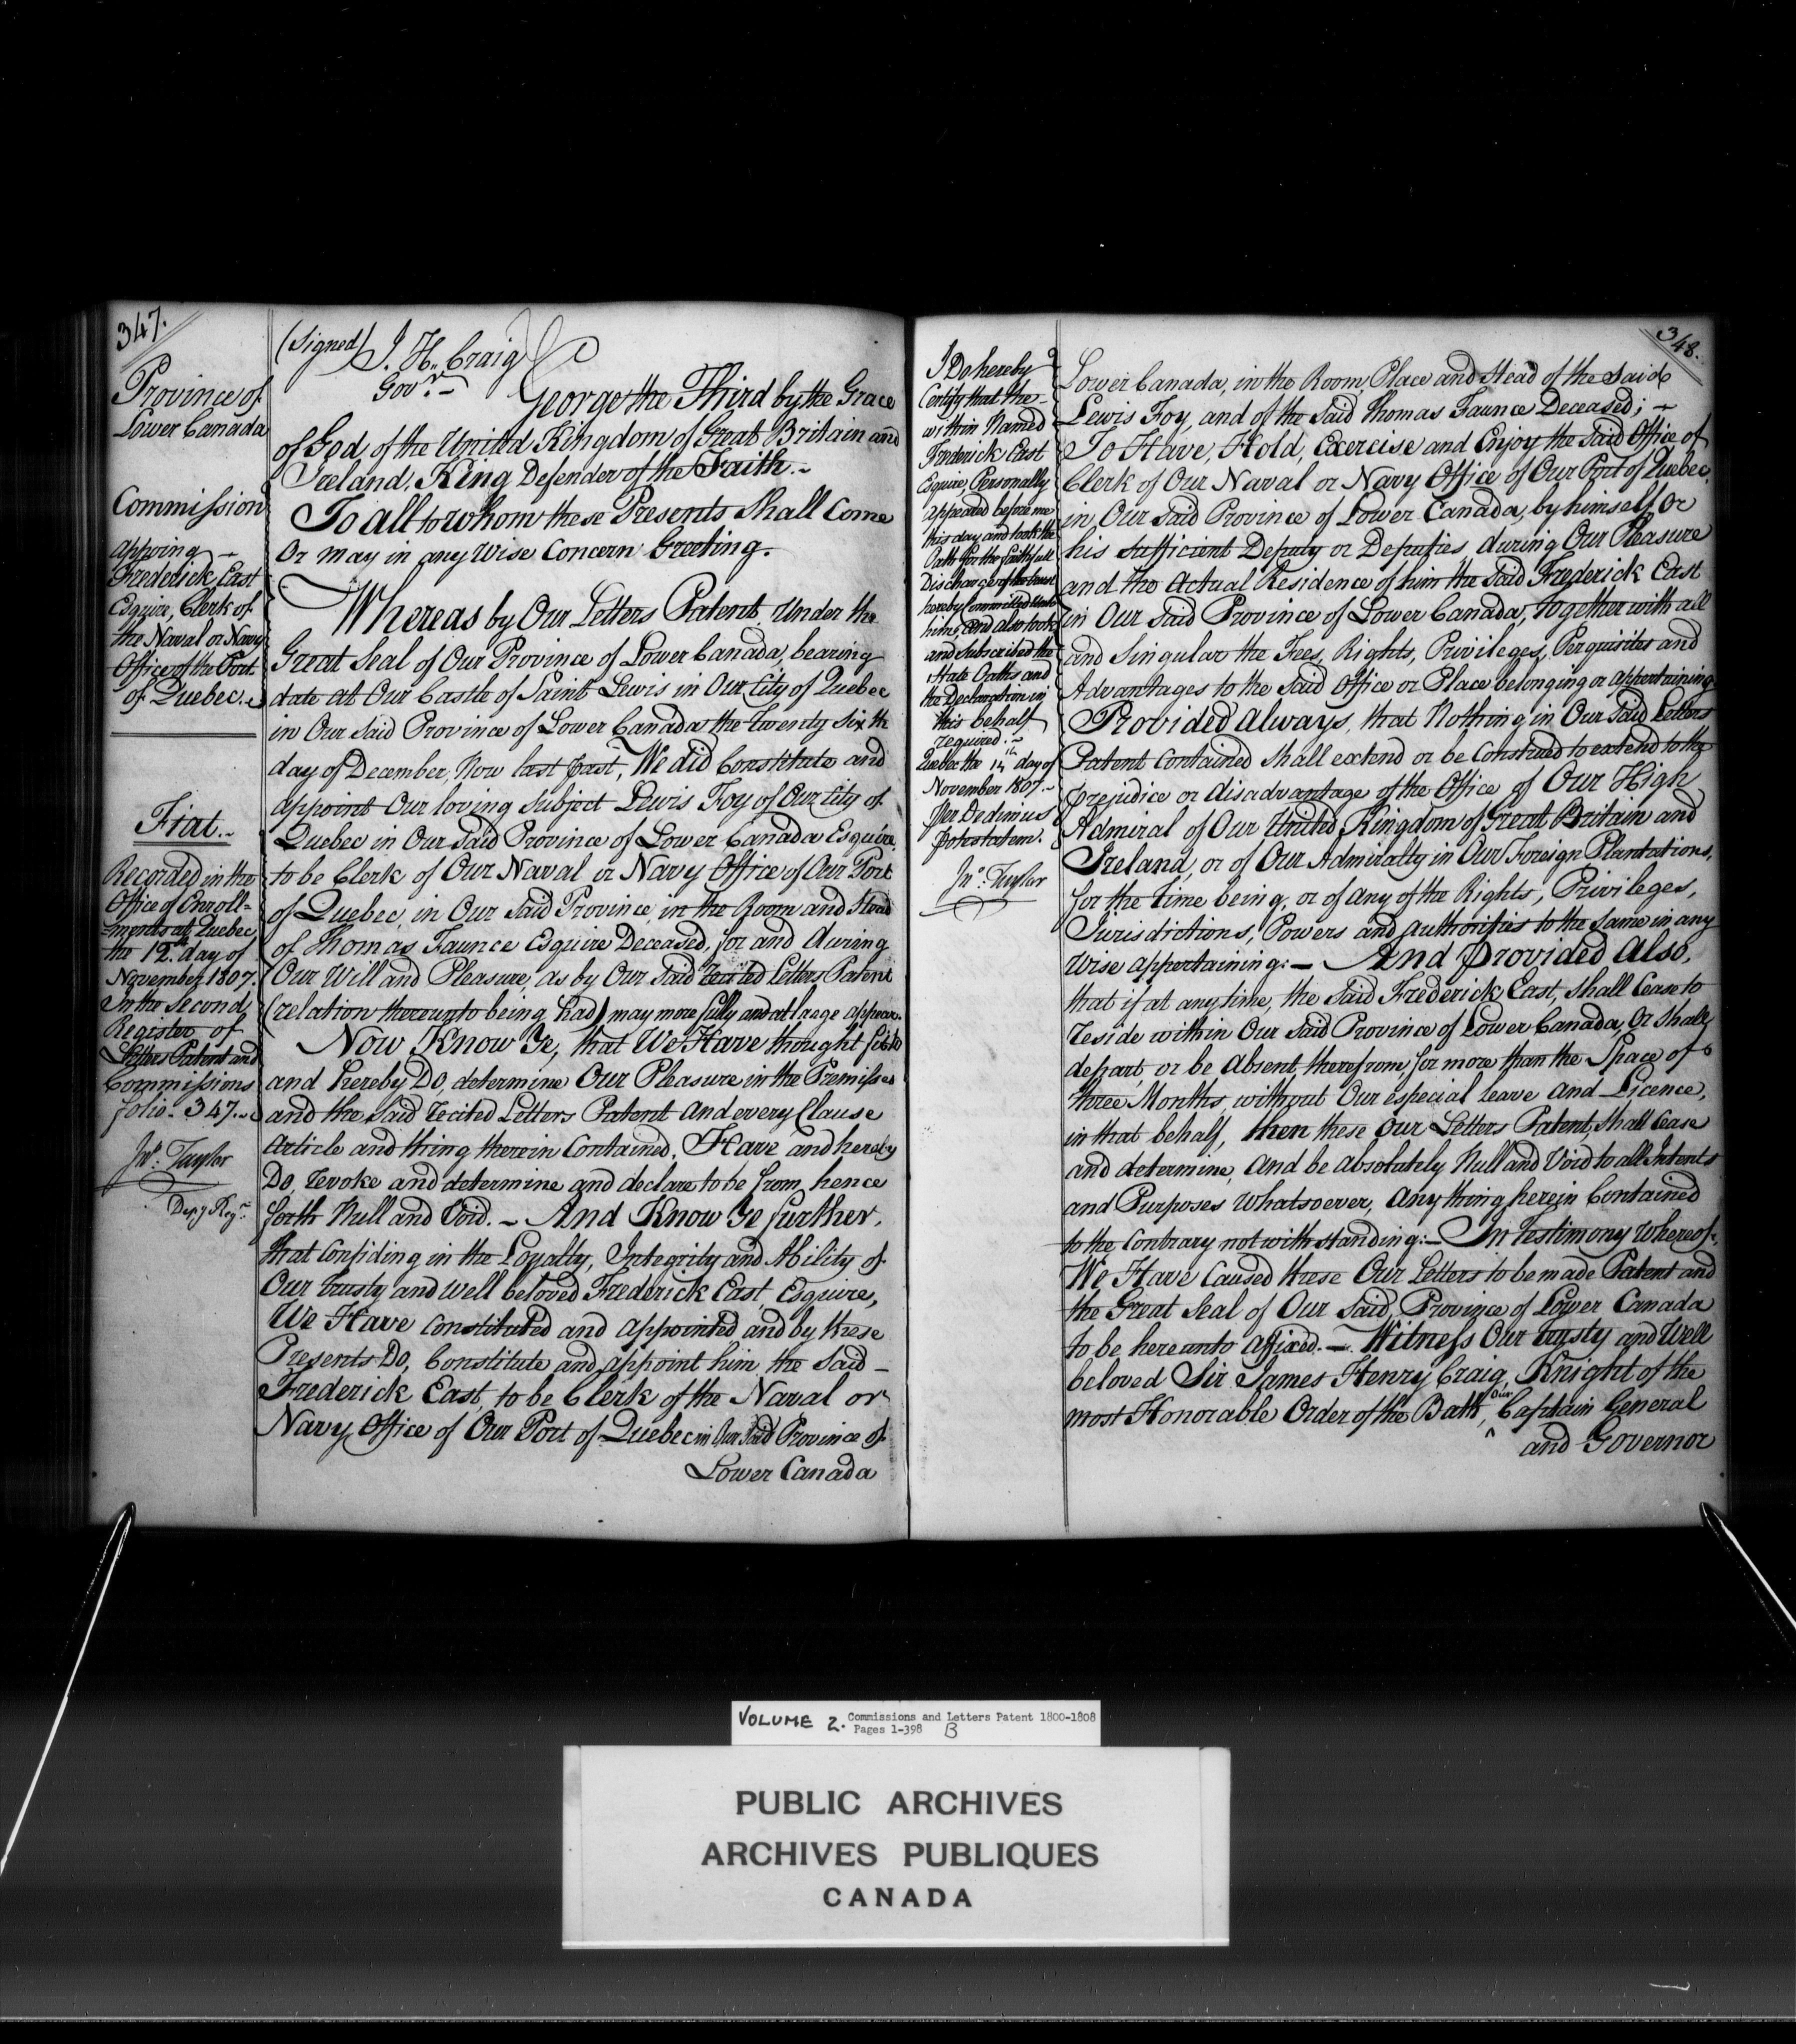 347.
Province of
Lower Canada
Commission
appoing
Frederick East
Esquire, Clerk of
the Naval or Navy
Office of the Port
of Quebec.
Fiat.
Recorded in the
Office of Enroll=
=ments at Quebec
the 12th day of
November 1807.
In the Second
Register of
Letters Patent and
Commissions
folio 347.
Jno. Taylor
Depy Regr.
(Signed) J. H. Craig
Govr.
George the Third by the Grace
of God, of the United Kingdom of Great Britain and
Ireland, King Defender of the Faith.
To all to whom these Presents shall Come
Or may in any wise Concern Greeting.
Whereas by Our Letters Patent, Under the
Great Seal of Our Province of Lower Canada, bearing
date at Our Castle of Saint Lewis in Our City of Quebec
in Our Said Province of Lower Canada the Twenty Sixth
day of December, Now last past, We did Constitute and
appoint Our loving Subject Lewis Foy of Our City of
Quebec in Our Said Province of Lower Canada Esquire,
to be Clerk of Our Naval or Navy Office of Our Port
of Quebec, in Our Said Province in the Room and Stead
of Thomas Faunce Esquire Deceased, for and during
Our Will and Pleasure, as by Our Said recited Letters Patent
(relation thereunto being had) may more fully and at large appear.
Now Know Ye, that We Have thought fit to
and hereby Do, determine Our Pleasure in the Premisses
and the Said recited Letters Patent and every Clause
Article and thing therein Contained, Have and hereby
Do, revoke and determine and declare to be from hence
forth Null and Void. - And Know Ye further,
that Confiding in the Loyalty, Integrity and Ability of
Our trusty and well beloved Frederick East, Esquire,
We Have constituted and appointed, and by these
Presents Do, Constitute and appoint him the Said -
Frederick East, to be Clerk of the Naval or
Navy Office of Our Port of Quebec in Our Said Province of
Lower Canada
348.
I Do hereby
Certify that the
within Named
Frederick East
Esquire, Personally
appeared before me
this day and took the
Oath for the faithfull
Discharge of the trust
hereby Committed unto
him, and also took
and Subscribed the
State Oaths and
the Declaration in
this behalf
required.
Quebec the 14th day of
November 1807.
Per Dedimus
Potestatem.
Jno. Taylor
Lower Canada, in the Room, Place and Stead of the Said
Lewis Foy, and of the Said Thomas Faunce Deceased; -
To Have, Hold, Exercise and Enjoy the Said Office of
Clerk of Our Naval or Navy Office of Our Port of Quebec,
in Our Said Province of Lower Canada, by himself, Or
his sufficient Deputy or Deputies during Our Pleasure
and the Actual Residence of him the Said Frederick East
in Our Said Province of Lower Canada, together with all
and Singular the Fees, Rights, Privileges, Perquisites and
Advantages to the Said Office or Place belonging or appertaining
Provided always, that Nothing in Our Said Letters
Patent Contained Shall extend or be Construed to extend to the
prejudice or disadvantage of the Office of Our High
Admiral of Our United Kingdom of Great Britain and
Ireland, or of Our Admiralty in Our Foreign Plantations,
for the time being, or of any of the Rights, Privileges,
Jurisdictions, Powers and Authorities to the Same in any
wise appertaining: - And provided also,
that if at any time, the Said Frederick East, Shall Cease to
reside within Our Said Province of Lower Canada, Or Shall
depart, or be Absent therefrom for more than the Space of
three Months, without Our especial leave and Licence,
in that behalf, then these Our Letters Patent, Shall Cease
and determine, And be absolutely Null and Void to all Intents
and Purposes Whatsoever, Anything herein Contained
to the Contrary notwithstanding: - In testimony Whereof,
We Have Caused these Our Letters to be made Patent and
the Great Seal of Our Said Province of Lower Canada
to be hereunto affixed. - Witness Our trusty and Well
beloved Sir James Henry Craig, Knight of the
most Honorable Order of the Bath, Our Captain General
and Governor
VOLUME 2. Commissions and Letters Patent 1800-1808
Pages 1-398 B
PUBLIC ARCHIVES
ARCHIVES PUBLIQUES
CANADA